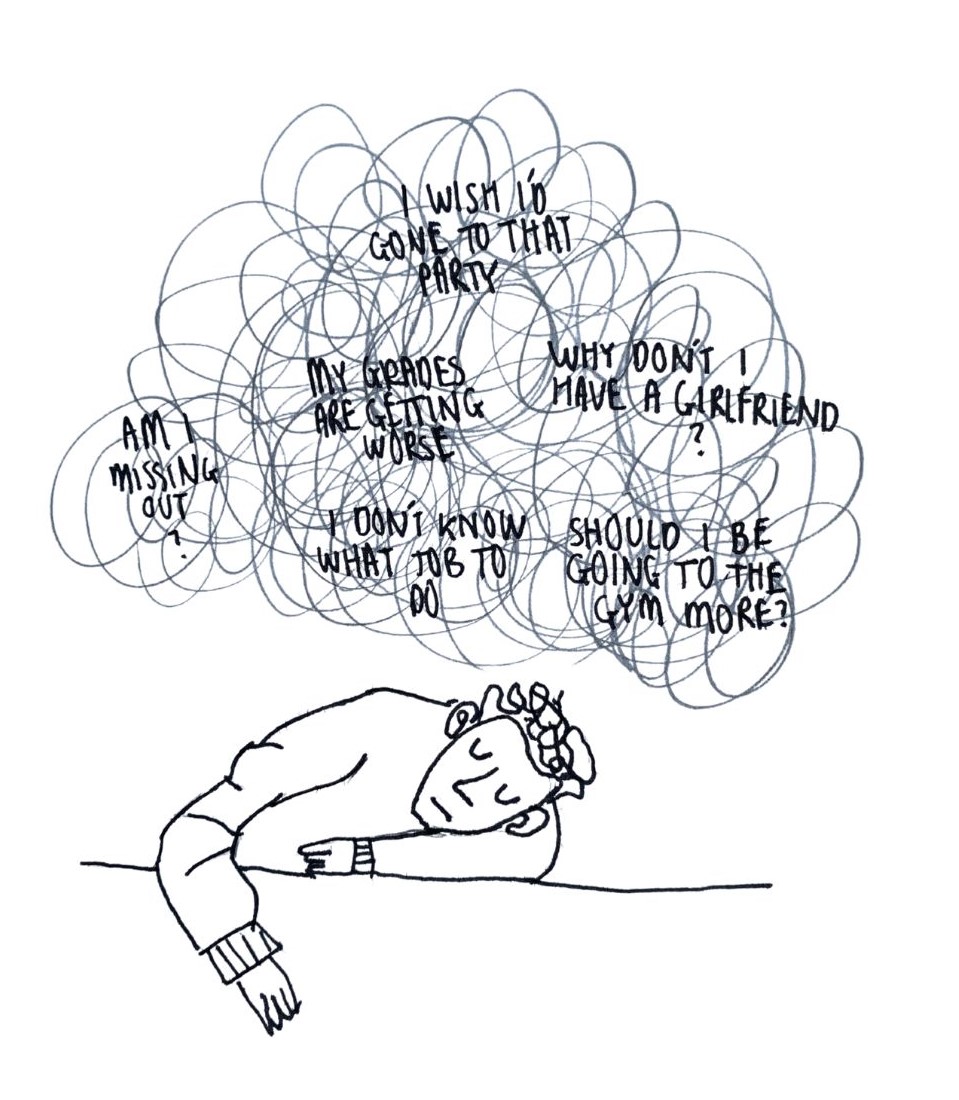 I WISH I'D
GONE TO THAT
PARTY
MY GRADES
ARE GETTING
WORSE
WHY DON'T I
HAVE A GIRLFRIEND
?
AM I
MISSING
OUT
?
I DON'T KNOW
WHAT JOB TO
DO
SHOULD I BE
GOING TO THE
GYM MORE?